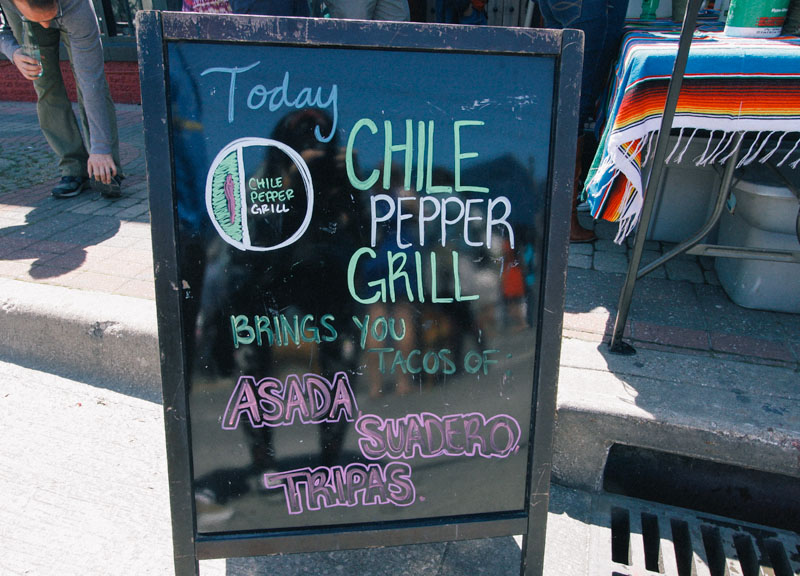 Today
CHILE
PEPPER
GRILL
CHILE
PEPPER
GRILL
BRINGS YOU
TACOS OF:
ASADA
SUADERO,
TRIPAS.